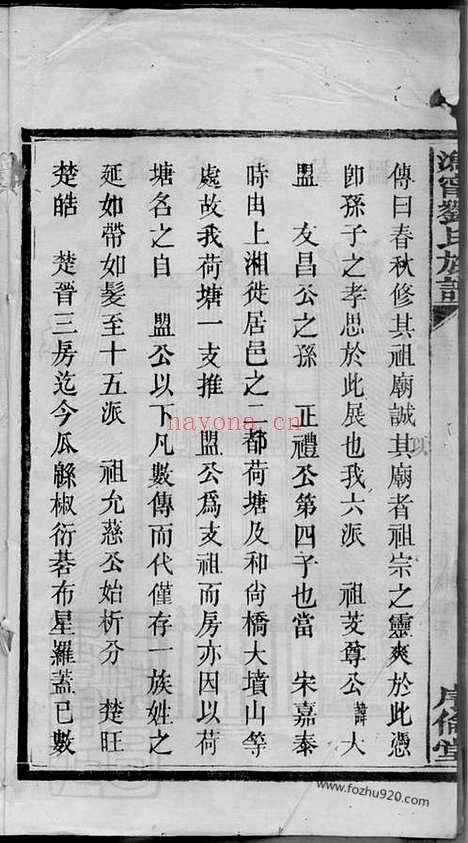 傳曰春秋修其祖廟誠其廟者祖宗之靈爽於此憑
卽孫子之孝思於此展也我六派　祖芰尊公諱大
盟　友昌公之孫　正禮公第四子也當　宋嘉泰
時由上湘徙居邑之二都荷塘及和尙橋大墳山等
處故我荷塘一支推　盟公爲支祖而房亦因以荷
塘名之自　盟公以下凡數傳而代僅存一族姓之
延如帶如髮至十五派　祖允慈公始析分　楚旺
楚皓　楚晉三房迄今瓜緜椒衍碁布星羅蓋已數
甯劉氏族譜
倫堂
nayona.cn
www.fozhu920.com